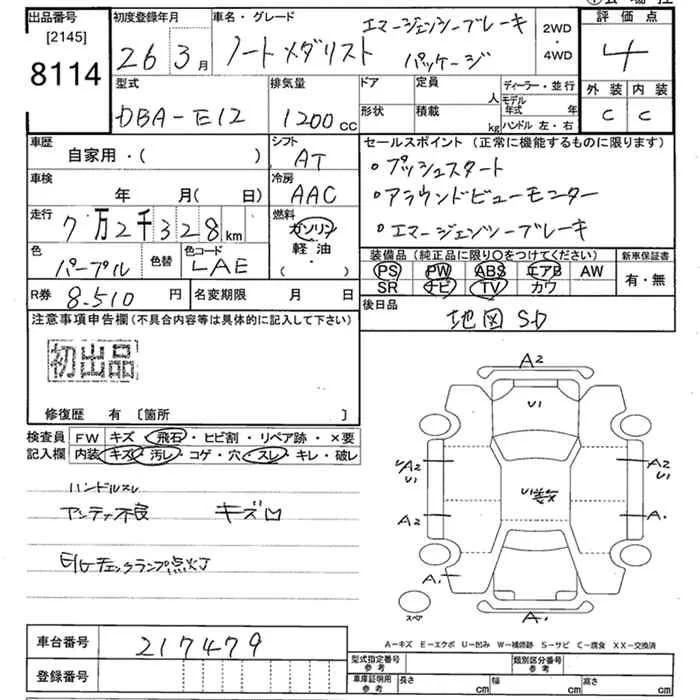 出品番号 初度登録年月 車名・グレード 評価点
[2145]
8114
26 3月 ノート メダリスト エマージェンシーブレーキ パッケージ 2WD・4WD 4
型式 排気量 ドア 定員 人 ディーラー・並行 外装 内装
DBA-E12 1200cc 形状 積載 kg モデル年式 年 C C
ハンドル 左・右
車歴 シフト セールスポイント (正常に機能するものに限ります)
自家用・( ) AT ・プッシュスタート
車検 冷房 ・アラウンドビューモニター
年 月( 日) AAC ・エマージェンシーブレーキ
走行 燃料
7万2千328km ガソリン
軽油
・
( )
色 色替 色コード 装備品 (純正品に限り○をつけてください) 新車保証書
パープル LAE PS PW ABS エアB AW 有・無
SR ナビ TV カワ
R券 8.510円 名変期限 月 日 後日品
地図 SD
注意事項申告欄 (不具合内容等は具体的に記入して下さい)
初出品
修復歴 有 〔箇所 〕
検査員 FW キズ・飛石・ヒビ割・リペア跡・×要
記入欄 内装 キズ・汚レ・コゲ・穴・スレ・キレ・破レ
ハンドルスレ
アンテナ不良 キズ凹
E/Gチェックランプ点灯
A2
U1
A2 U1
A2
U1
A2
A1
A1
A1
スペア
A-キズ E-エクボ U-凹み W-補修跡 S-サビ C-腐食 XX-交換済
車台番号 217479
登録番号
型式指定番号 参考 類別区分番号 参考
車庫証明用 参考 長さ cm 幅 cm 高さ cm